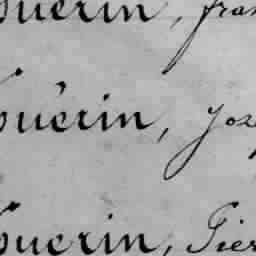 Guérin, fran
Guérin, Joz
Guérin, Pier